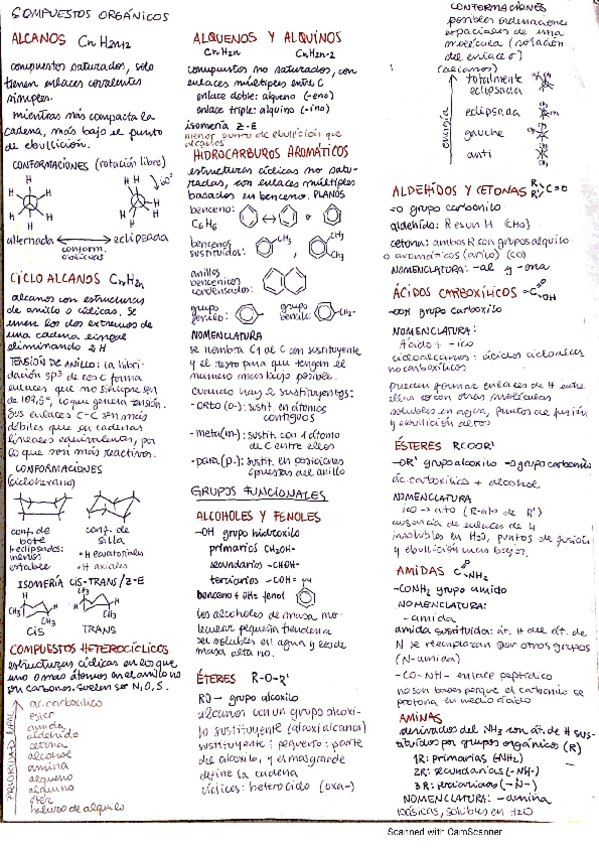 COMPUESTOS ORGÁNICOS
ALCANOS CnH2n+2
compuestos saturados, solo
tienen enlaces covalentes
simples.
mientras más compacta la
cadena, más bajo el punto
de ebullición.
CONFORMACIONES (rotación libre)
H H H H H H
H H 60°
alternada eclipsada
conform.
CICLOALCANOS CnH2n
alcanos con estructuras
de anillo o cíclicas. Se
unen los dos extremos de
una cadena
eliminando 2 H
TENSIÓN DE ANILLO: la hibri-
dación sp3 de los C forma
enlaces que no siempre son
de 109,5°, lo que genera tensión.
Sus enlaces C-C son más
débiles que en cadenas
lineales equivalentes, por
lo que son más reactivos.
CONFORMACIONES
(ciclohexano)
conf. de conf. de
bote silla
H eclipsados: • H ecuatoriales
menos • H axiales
estable
ISOMERÍA CIS-TRANS/Z-E
CH3 CH3 CH3 CH3
CIS TRANS
COMPUESTOS HETEROCÍCLICOS
estructuras cíclicas en los que
uno o más átomos en el anillo no
son carbonos. Suelen ser N, O, S.
PRIORIDAD IUPAC
ac. carboxílico
ester
amida
aldehído
cetona
alcohol
amina
alqueno
alquino
éter
haluro de alquilo
ALQUENOS Y ALQUINOS
CnH2n CnH2n-2
compuestos no saturados, con
enlaces múltiples entre C
enlace doble: alqueno (-eno)
enlace triple: alquino (-ino)
isomería Z-E
menor punto de ebullición que
alcanos
HIDROCARBUROS AROMÁTICOS
estructuras cíclicas no satu-
radas, con enlaces múltiples
basados en benceno. PLANOS
benceno: o
C6H6
bencenos CH3 CH3
sustituidos: , CH3
anillos
bencénicos
condensados:
grupo grupo
fenilo: bencilo: CH2-
NOMENCLATURA
se nombra C1 al C con sustituyente
y el resto para que tengan el
número más bajo posible.
cuando hay 2 sustituyentes:
- ORTO (o-): sustit. en átomos
contiguos
- meta (m-): sustit. con 1 átomo
de C entre ellos
- para (p-): sustit. en posiciones
opuestas del anillo
GRUPOS FUNCIONALES
ALCOHOLES Y FENOLES
-OH grupo hidroxilo
primarios CH2OH-
secundarios -CHOH-
terciarios -COH=
benceno + OH= fenol OH
los alcoholes de masa mo-
lecular pequeña tienden a
ser solubles en agua y los de
masa alta no.
ÉTERES R-O-R'
RO- grupo alcoxilo
alcanos con un grupo alcoxi-
lo sustituyente (alcoxialcanos)
sustituyente: pequeño: parte
del alcoxilo, y el más grande
define la cadena
cíclicos: heterociclo (oxa-)
CONFORMACIONES
posibles ordenaciones
espaciales de una
molécula (rotación
del enlace σ)
(alcanos)
energía
totalmente
eclipsada
eclipsada
gauche
anti
ALDEHÍDOS Y CETONAS R R' C=O
=O grupo carbonilo
aldehído: R es un H (CHO)
cetona: ambos R son grupos alquilo
o aromáticos (arilo) (CO)
NOMENCLATURA: -al y -ona
ÁCIDOS CARBOXÍLICOS -C O OH
-OOH grupo carboxilo
NOMENCLATURA:
Ácido + -ico
cicloalcanos: ácidos
carboxílicos
pueden formar enlaces de H entre
ellos o con otras moléculas
solubles en agua, puntos de fusión
y ebullición altos
ÉSTERES RCOOR'
-OR' grupo alcoxilo =O grupo carbonilo
ác. carboxílico + alcohol
NOMENCLATURA
ico → ato (R-ato de R')
ausencia de enlaces de H
insolubles en H2O, puntos de fusión
y ebullición más bajos.
AMIDAS C O NH2
-CONH2 grupo amido
NOMENCLATURA:
-amida
amida sustituida: át. H del át. de
N se reemplazan por otros grupos
(N-amida)
-CO-NH- enlace peptídico
no son bases porque el carbonilo se
protona en medio ácido
AMINAS
derivados del NH3 con át. de H sus-
tituidos por grupos orgánicos (R)
1R: primarias (-NH2)
2R: secundarias (-NH-)
3R: terciarias (-N-)
NOMENCLATURA: -amina
básicas, solubles en H2O
Scanned with CamScanner